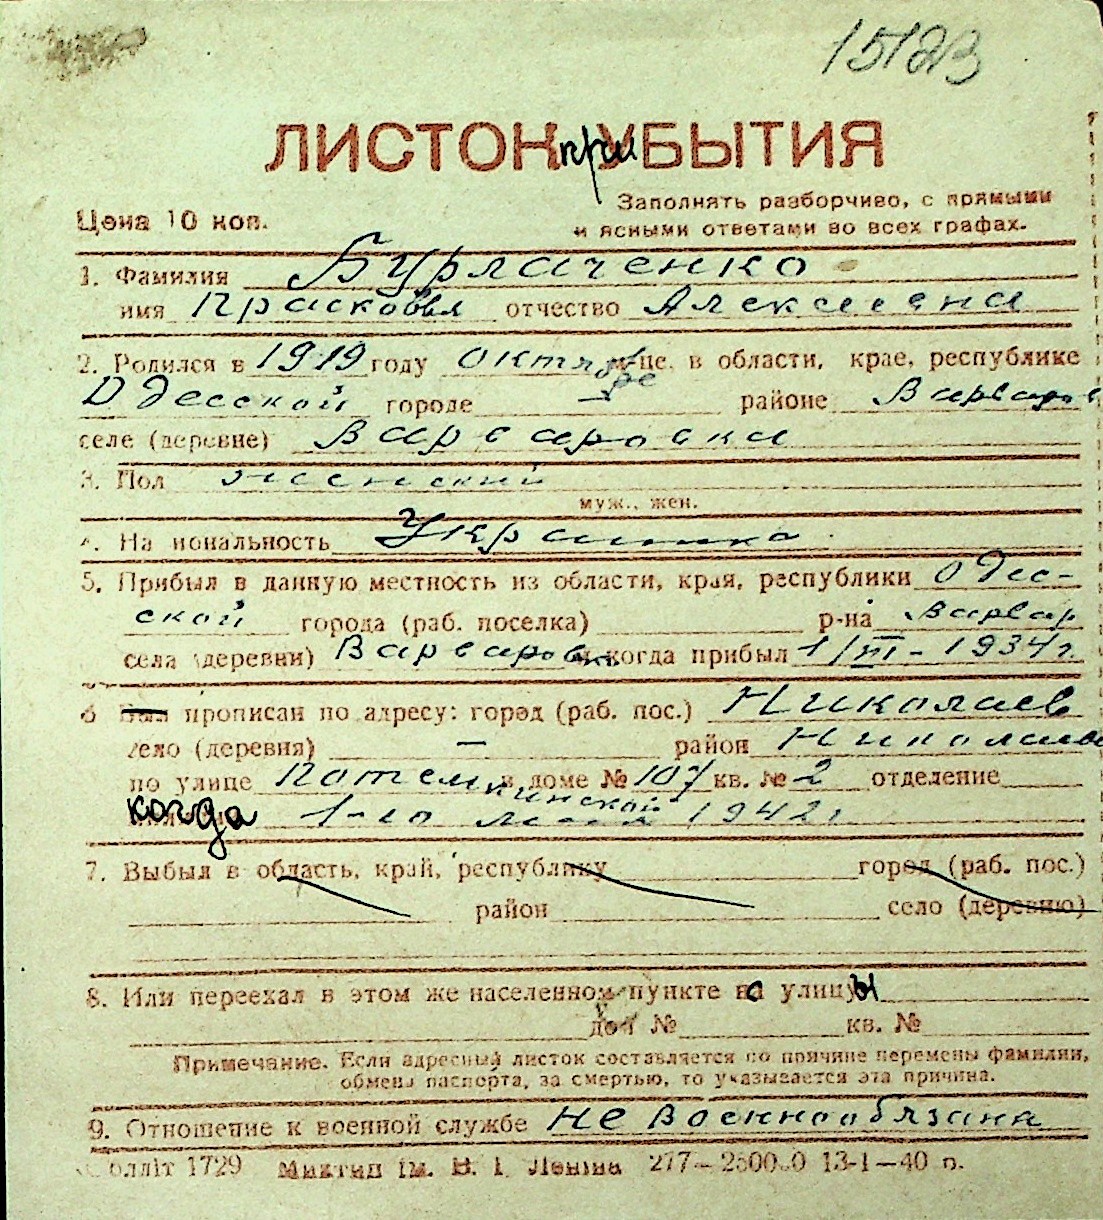 15123
ЛИСТОК при УБЫТИЯ
Цена 10 коп.
Заполнять разборчиво, с прямыми
и ясными ответами во всех графах.
1. Фамилия Бурлаченко
имя Прасковья отчество Алексеевна
2. Родился в 1919 году октябре м-це, в области, крае, республике
Одесской городе — районе Варваров
селе (деревне) Варваровка
3. Пол женский
муж., жен.
4. Национальность Украинка
5. Прибыл в данную местность из области, края, республики Одес-
ской города (раб. поселка) р-на Варвар
села (деревни) Варваровка и когда прибыл 1/III - 1934 г.
6 Был прописан по адресу: город (раб. пос.) Николаев
село (деревня) — район Николаев
по улице Потемкинской в доме № 107 кв. № 2 отделение
когда 1-го 1942 г.
7. Выбыл в область, край, республику город (раб. пос.)
район село (деревню)
8. Или переехал в этом же населенном пункте с улицы
дом № кв. №
Примечание. Если адресный листок составляется по причине перемены фамилии,
обмена паспорта, за смертью, то указывается эта причина.
9. Отношение к военной службе Не военнообязана
олліт 1729 им. В. І. Леніна 277— 13-1—40 п.